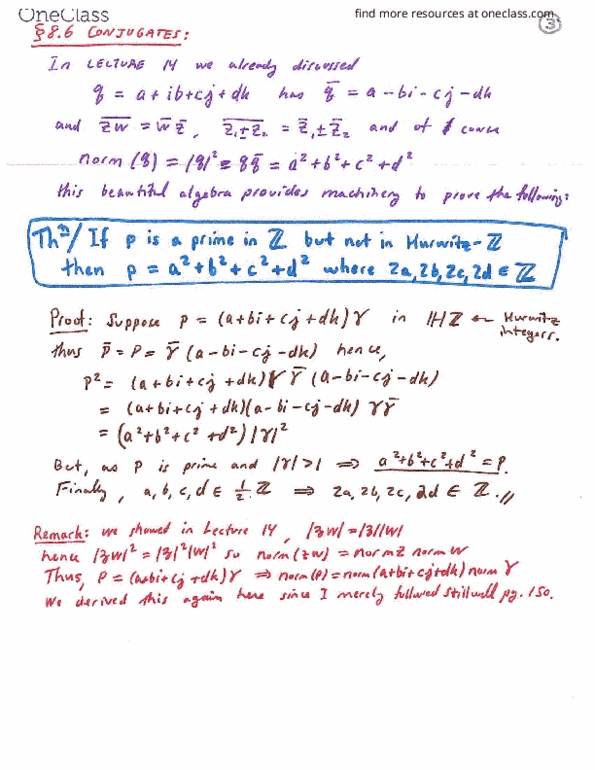 OneClass
find more resources at oneclass.com
3
§8.6 CONJUGATES:
In LECTURE 14 we already discussed
q = a + ib + cj + dk has q̄ = a - bi - cj - dk
and z̅w̅ = w̄ z̄, z̅₁±z̅₂ = z̄₁ ± z̄₂ and of course
norm(q) = |q|² = q q̄ = a² + b² + c² + d²
this beautiful algebra provides machinery to prove the following:
Thᵐ/ If p is a prime in ℤ but not in Hurwitz-ℤ
then p = a² + b² + c² + d² where 2a, 2b, 2c, 2d ∈ ℤ
Proof: Suppose p = (a + bi + cj + dk)γ in ℍℤ ← Hurwitz integers.
thus p̄ = p = γ̄ (a - bi - cj - dk) hence,
p² = (a + bi + cj + dk)γ γ̄ (a - bi - cj - dk)
= (a + bi + cj + dk)(a - bi - cj - dk) γγ̄
= (a² + b² + c² + d²)|γ|²
But, as p is prime and |γ| > 1 ⇒ a² + b² + c² + d² = p.
Finally, a, b, c, d ∈ ½ℤ ⇒ 2a, 2b, 2c, 2d ∈ ℤ. //
Remark: we showed in Lecture 14, |zw| = |z||w|
hence |zw|² = |z|²|w|² so norm(zw) = norm z norm w
Thus, p = (a + bi + cj + dk)γ ⇒ norm(p) = norm(a + bi + cj + dk) norm γ
We derived this again here since I merely followed Stillwell pg. 150.